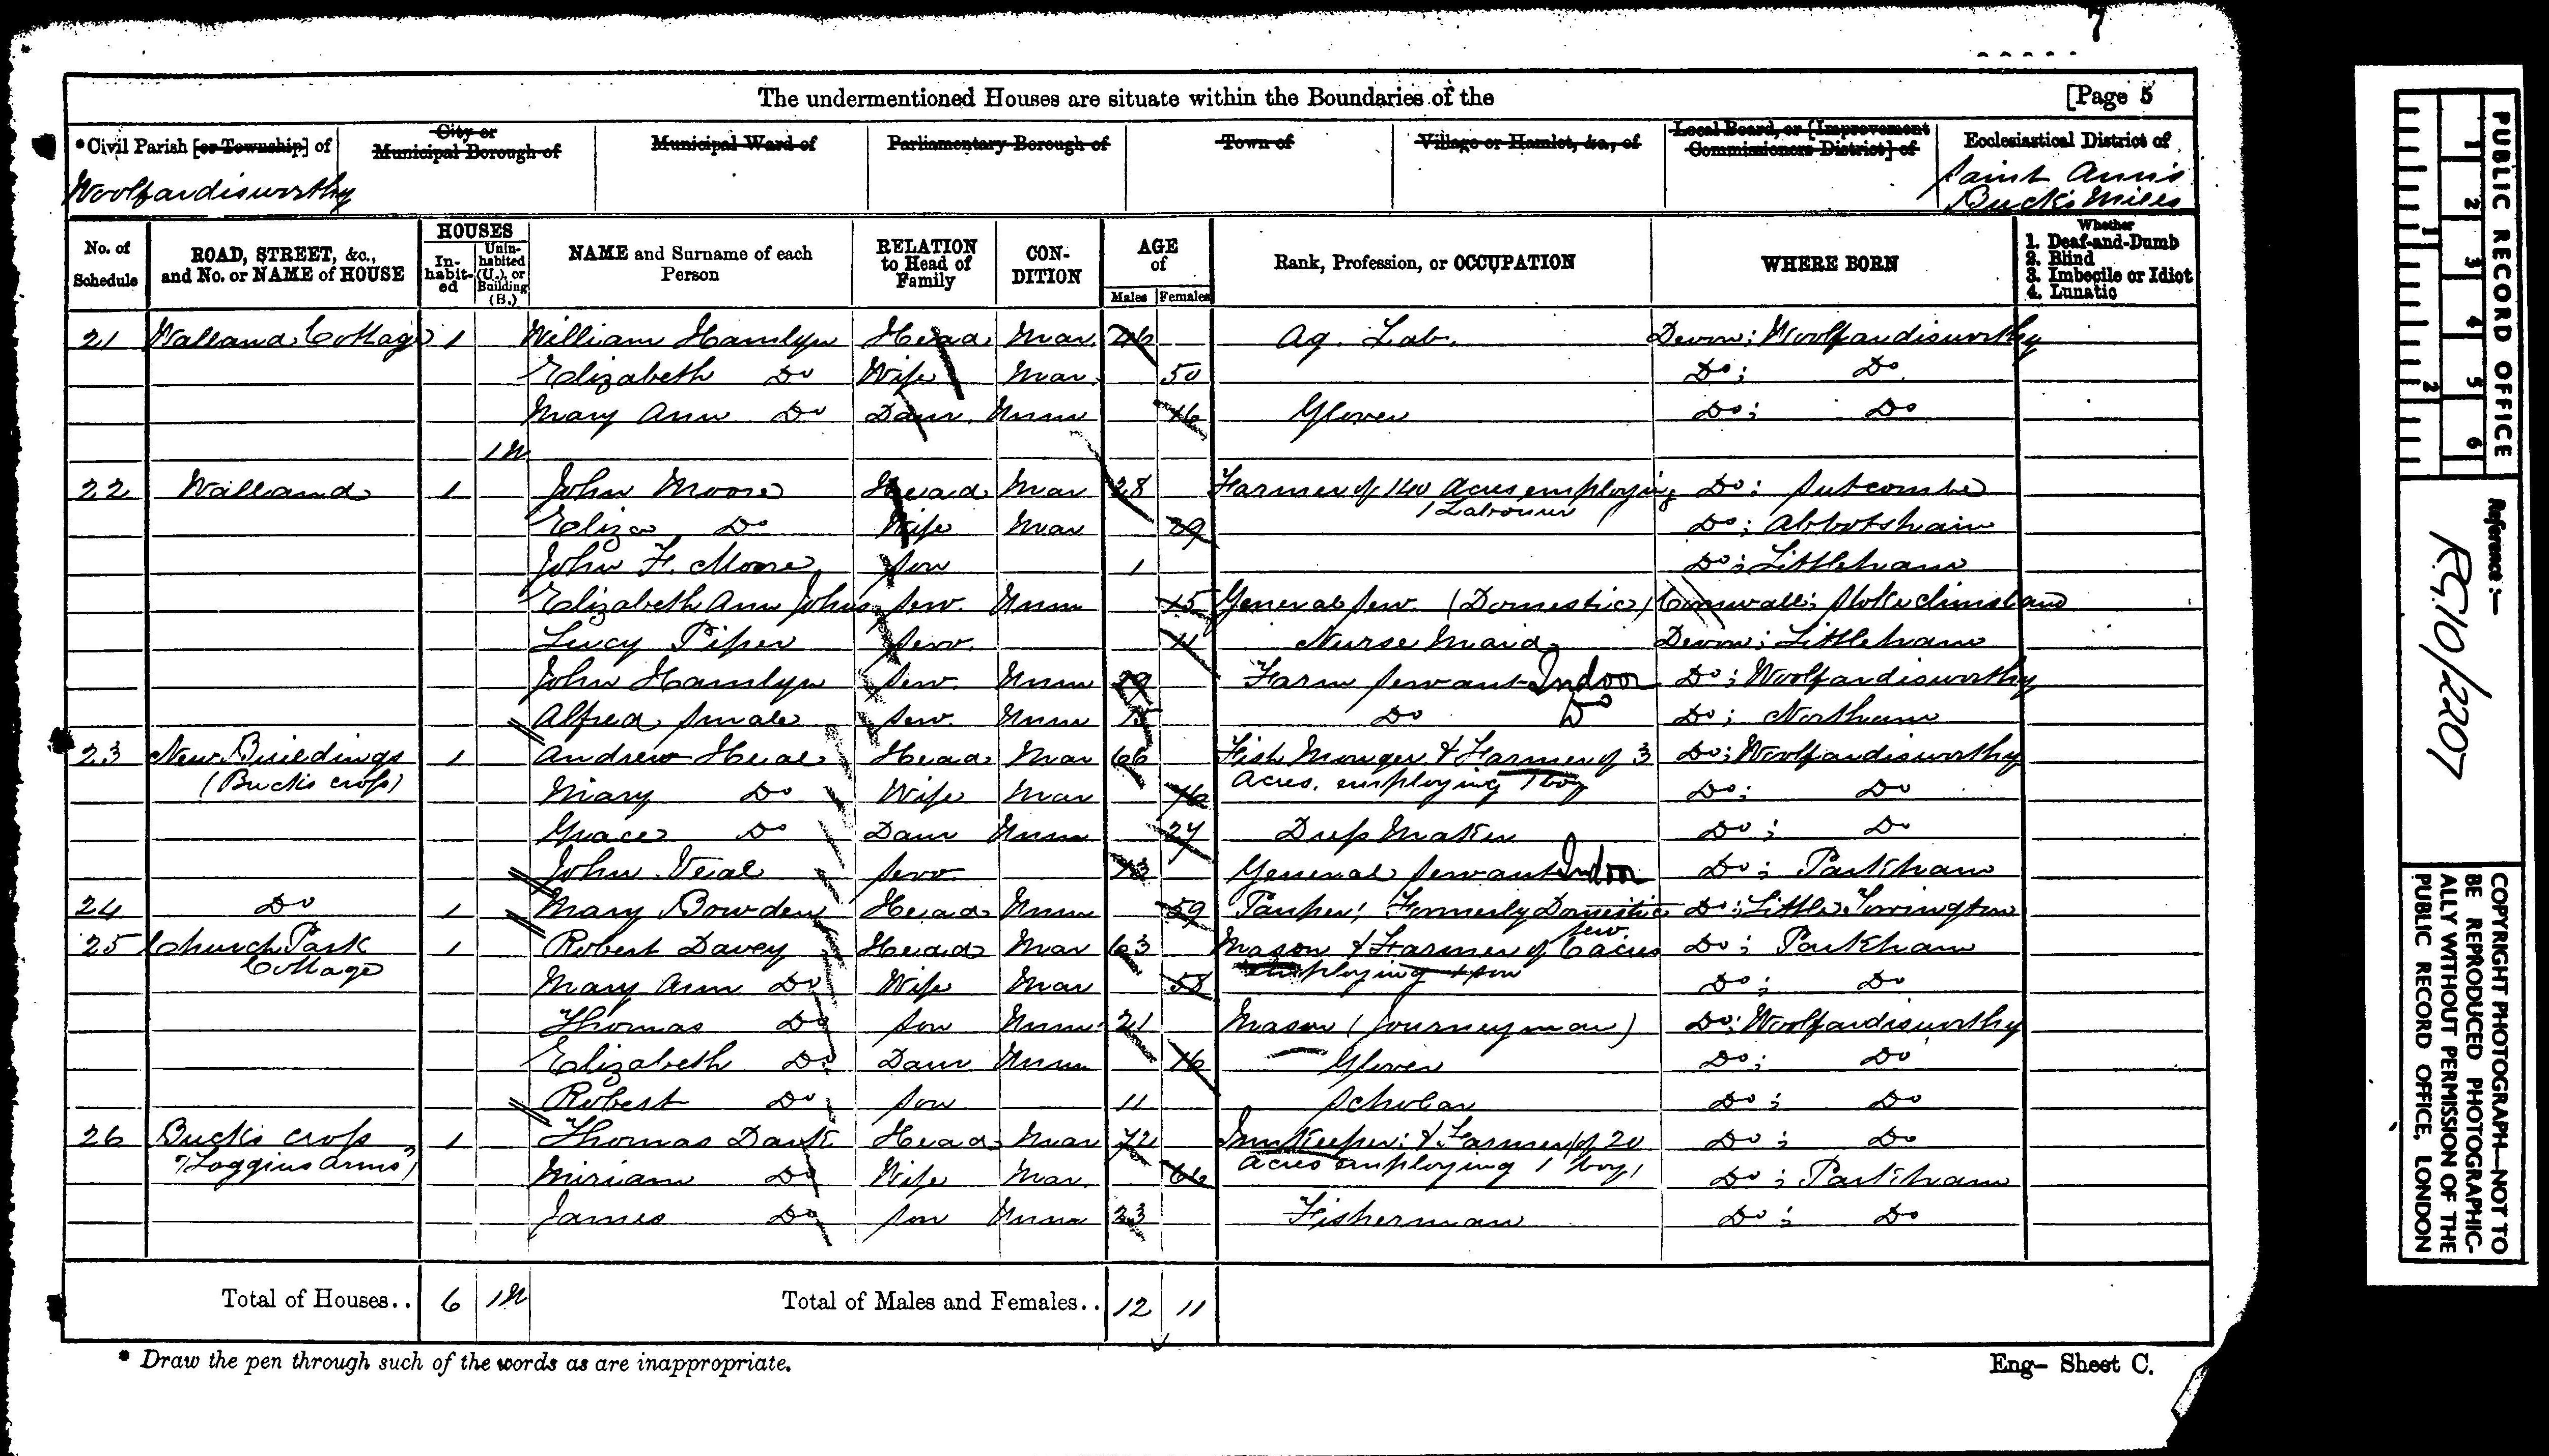 7
The undermentioned Houses are situate within the Boundaries of the [Page 5
*Civil Parish [or Township] of
City or Municipal Borough of
Municipal Ward of
Parliamentary Borough of
Town of
Village or Hamlet, &c., of
Local Board, or [Improvement Commissioners District] of
Ecclesiastical District of
Woolfardisworthy
Saint Ann's
Buck's Mills
No. of Schedule
ROAD, STREET, &c., and No. or NAME of HOUSE
HOUSES
Inhabited
Uninhabited (U.), or Building (B.)
NAME and Surname of each Person
RELATION to Head of Family
CONDITION
AGE of
Males Females
Rank, Profession, or OCCUPATION
WHERE BORN
Whether
1. Deaf-and-Dumb
2. Blind
3. Imbecile or Idiot
4. Lunatic
21 Walland Cottage 1 William Hamlyn Head Mar Ag. Lab. Devon; Woolfardisworthy
Elizabeth Do Wife Mar 50 Do; Do
Mary Ann Do Daur Unm 16 Glover Do; Do
1U
22 Walland 1 John Moore Head Mar 28 Farmer of 140 Acres employing Do; Sutcombe
1 Labourer
Eliza Do Wife Mar 29 Do; Abbotsham
John F. Moore Son 1 Do; Littleham
Elizabeth Ann Johns Serv. Unm 15 General Serv. (Domestic) Cornwall; Stoke Climsland
Lucy Piper Serv. 11 Nurse Maid Devon; Littleham
John Hamlyn Serv. Unm Farm Servant Indoor Do; Woolfardisworthy
Alfred Smale Serv. Unm 15 Do Do Do; Northam
23 New Buildings 1 Andrew Heal Head Mar 66 Fish Monger & Farmer of 3 Do; Woolfardisworthy
(Bucks Cross) Acres. employing 1 boy
Mary Do Wife Mar Do; Do
Grace Do Daur Unm 27 Dress Maker Do; Do
John Veal Serv. 13 General Servant Indoor Do; Parkham
24 Do 1 Mary Bowden Head Unm 59 Pauper; Formerly Domestic Do; Little Torrington
Serv.
25 Church Park 1 Robert Davey Head Mar 63 Mason & Farmer of 6 acres Do; Parkham
Cottage employing 1 son
Mary Ann Do Wife Mar 58 Do; Do
Thomas Do Son Unm 21 Mason (Journeyman) Do; Woolfardisworthy
Elizabeth Do Daur Unm 16 Glover Do; Do
Robert Do Son 11 Scholar Do; Do
26 Bucks Cross 1 Thomas Dark Head Mar 72 Innkeeper; & Farmer of 20 Do; Do
"Hoggins Arms" Acres employing 1 boy,
Miriam Do Wife Mar. 66 Do; Parkham
James Do Son Unm 23 Fisherman Do; Do
Total of Houses.. 6 1U Total of Males and Females.. 12 11
* Draw the pen through such of the words as are inappropriate.
Eng- Sheet C.
PUBLIC RECORD OFFICE
1 2 3 4 5 6
1 2
Reference :-
R.G. 10/2207
COPYRIGHT PHOTOGRAPH—NOT TO
BE REPRODUCED PHOTOGRAPHIC-
ALLY WITHOUT PERMISSION OF THE
PUBLIC RECORD OFFICE, LONDON